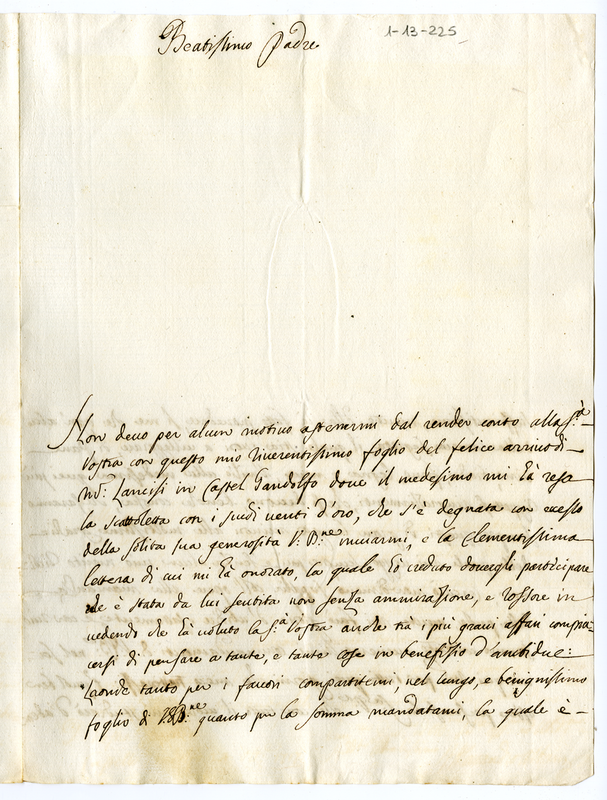 Beatissimo Padre
1-13-225
Non devo per alcun motivo astenermi dal render conto alla S.tà
Vostra con questo mio riverentissimo foglio del felice arrivo di
Mr. Lancisi in Castel Gandolfo dove il medesimo mi hà resa
la scattoletta con i scudi venti d'oro, che s'è degnata con eccesso
della solita sua generosità V. B.ne inviarmi, e la clementissima
lettera di cui mi hà onorato, la quale hò creduto dovergli participare
che è stata da lui sentita non senza ammirazione, e rossore in
vedendo che hà voluto la S.tà Vostra anche trà i più gravi affari compia:
cersi di pensare a tante, e tante cose in benefissio d'ambidue:
Laonde tanto per i favori compartitimi, nel lungo, e benignissimo
foglio di V. B.ne quanto per la somma mandatami, la quale è